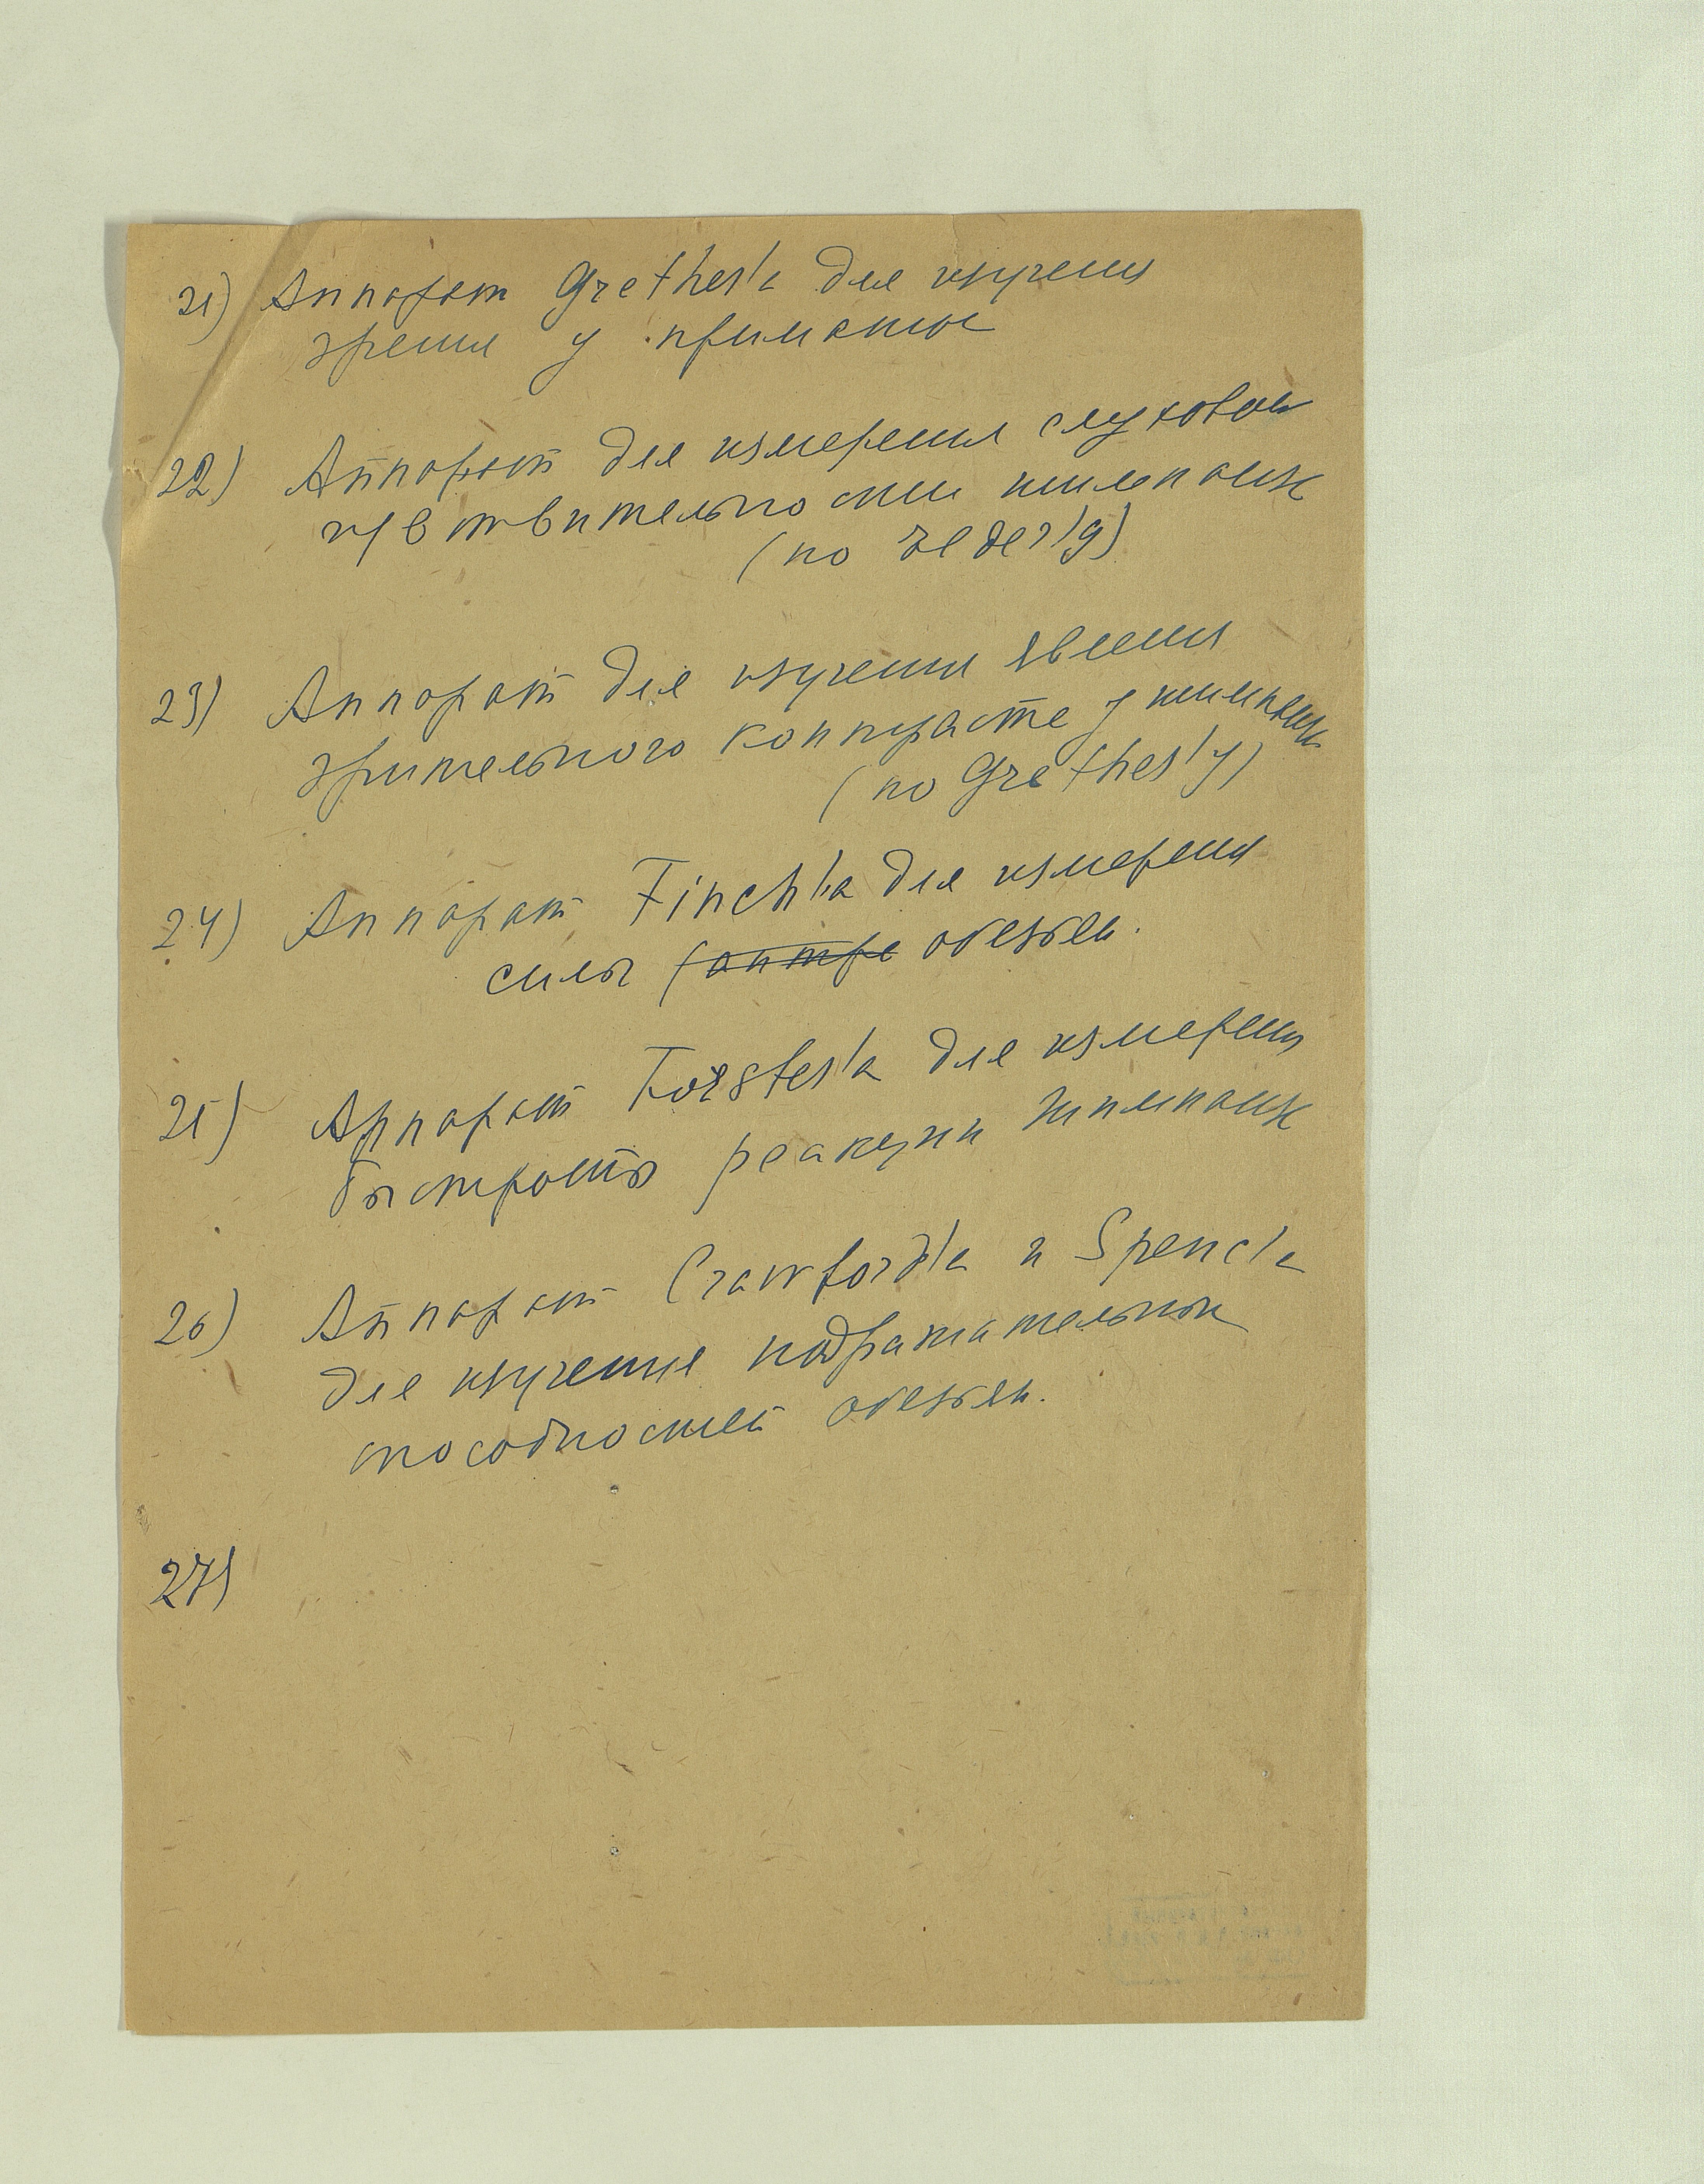 21) Аппарат Grether'a для изучения
зрения у приматов
22) Аппарат для измерения слуховой
чувствительности шимпанзе
(по Elder'у)
23) Аппарат для изучения явления
зрительного контраста у шимпанзе
(по Grether'у)
24) Аппарат Finch'a для измерения
силы (антро обезьян.
25) Аппарат Forster'a для измерения
быстроты реакции шимпанзе
26) Аппарат Crawford'a и Spence'a
для изучения подражательных
способностей обезьян.
27)